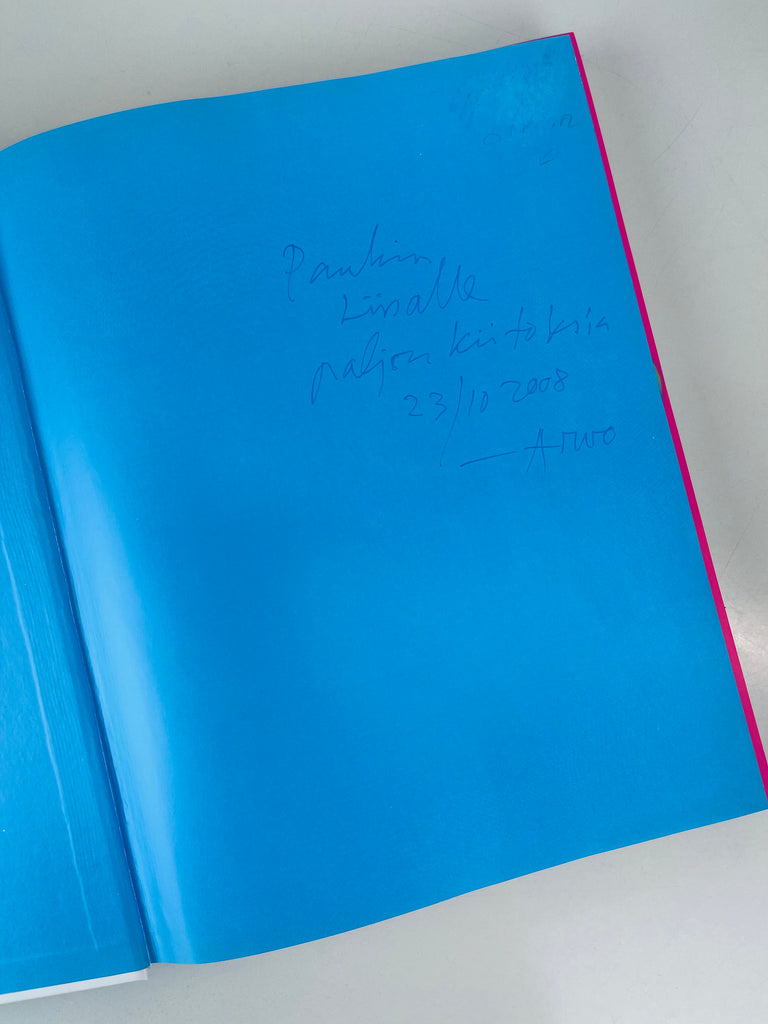 Paulin
Liisalle
paljon kiitoksia
23/10 2008
— Arvo